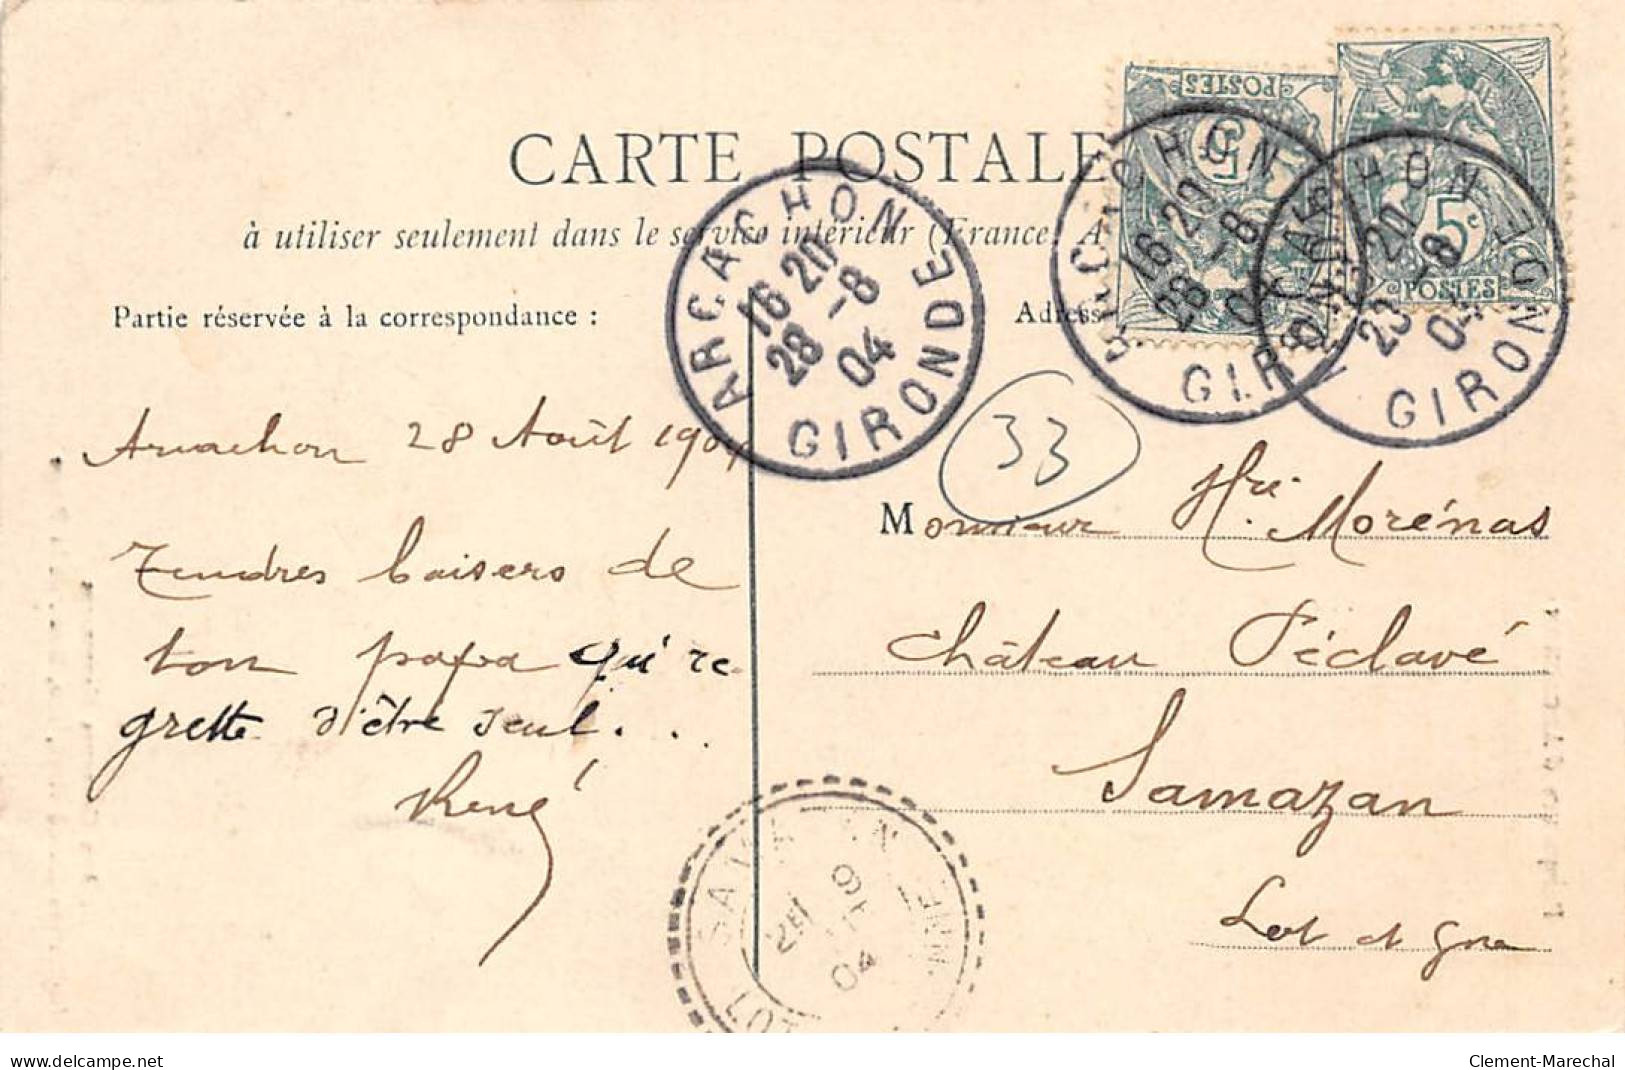 CARTE POSTALE
à utiliser seulement dans le service intérieur (France, A
Partie réservée à la correspondance :
Adress
POSTES
5
5c
POSTES
ARCACHON
16 20
28 -8
04
GIRONDE
ARCACHON
16 20
28 -8
04
GIRONDE
ARCACHON
20
-8
04
GIRONDE
33
Arcachon 28 Août 1904
Tendres baisers de
ton papa qui re
grette d'être seul...
René
Monsieur Hri Morénas
Château Péclavé
Samazan
Lot et Gne
LOT
04
delcampe.net
Clement-Marechal